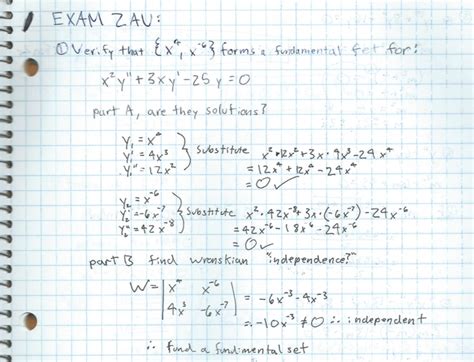 EXAM 2 AU:
① Verify that {x⁴, x⁻⁶} forms a fundamental set for:
x²y" + 3xy' - 25y = 0
part A, are they solutions?
y₁ = x⁴
y₁' = 4x³
y₁" = 12x²
} Substitute x²·12x² + 3x·4x³ - 24x⁴
= 12x⁴ + 12x⁴ - 24x⁴
= 0 ✓
y₂ = x⁻⁶
y₂' = -6x⁻⁷
y₂" = 42x⁻⁸
} Substitute x²·42x⁻⁸ + 3x·(-6x⁻⁷) - 24x⁻⁶
= 42x⁻⁶ - 18x⁻⁶ - 24x⁻⁶
= 0 ✓
part B find wronskian "independence?"
W = | x⁴ x⁻⁶ | = -6x⁻³ - 4x⁻³
| 4x³ -6x⁻⁷ |
= -10x⁻³ ≠ 0 ∴ independent
∴ find a fundimental set